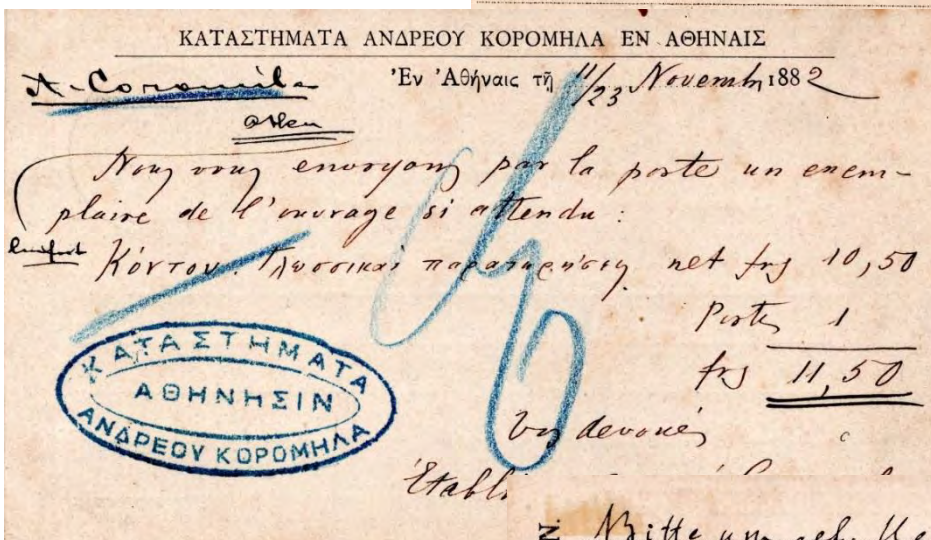 ΚΑΤΑΣΤΗΜΑΤΑ ΑΝΔΡΕΟΥ ΚΟΡΟΜΗΛΑ ΕΝ ΑΘΗΝΑΙΣ
Ἐν Ἀθήναις τῇ 11/23 Novemb 1882
A. Coromila
Athen
Nous vous envoyons par la poste un exem-
plaire de l'ouvrage si attendu :
Κόντου. Γλωσσικαὶ παρατηρήσεις net frs 10,50
Porto 1
frs 11,50
Vos devoués
Établ
ΚΑΤΑΣΤΗΜΑΤΑ
ΑΘΗΝΗΣΙΝ
ΑΝΔΡΕΟΥ ΚΟΡΟΜΗΛΑ
N. Bitte um